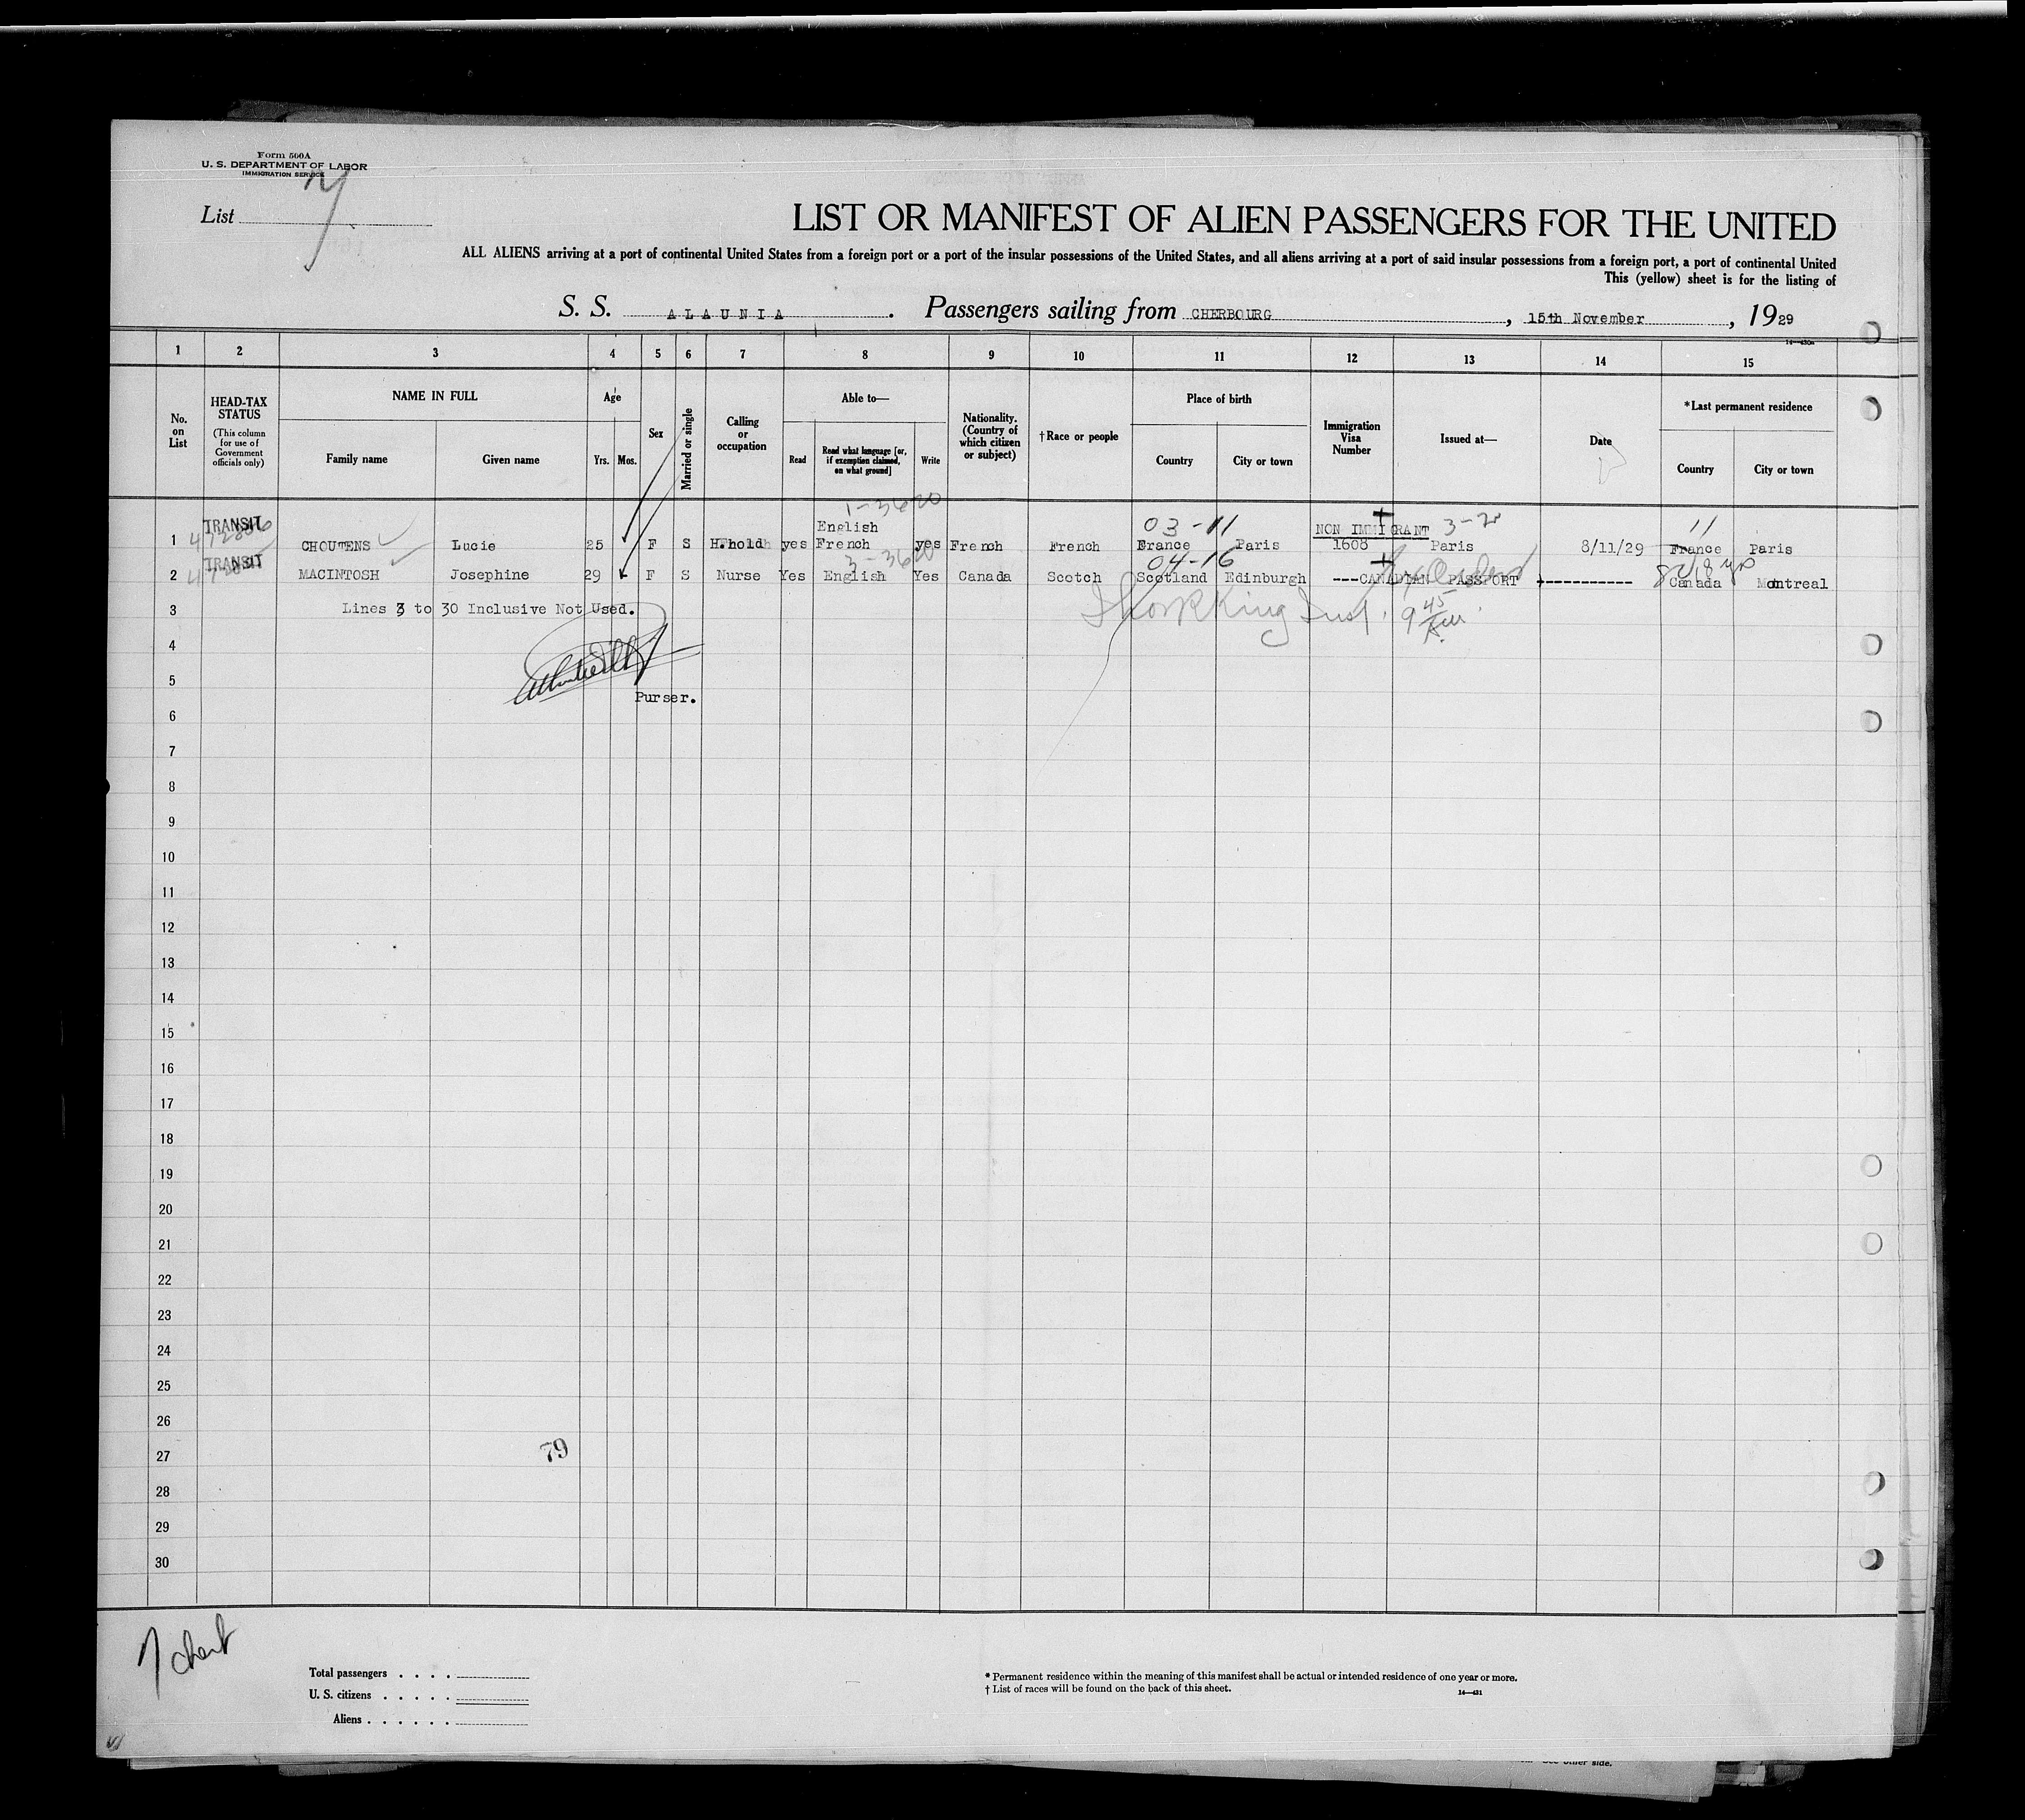 Form 500A
U. S. DEPARTMENT OF LABOR
IMMIGRATION SERVICE
List
LIST OR MANIFEST OF ALIEN PASSENGERS FOR THE UNITED
ALL ALIENS arriving at a port of continental United States from a foreign port or a port of the insular possessions of the United States, and all aliens arriving at a port of said insular possessions from a foreign port, a port of continental United
This (yellow) sheet is for the listing of
S. S. ALAUNIA. Passengers sailing from CHERBOURG, 15th November, 1929
1 2 3 4 5 6 7 8 9 10 11 12 13 14 15
No. on List
HEAD-TAX STATUS (This column for use of Government officials only)
NAME IN FULL
Family name Given name
Age
Yrs. Mos.
Sex
Married or single
Calling or occupation
Able to—
Read Read what language [or, if exemption claimed, on what ground] Write
Nationality. (Country of which citizen or subject)
†Race or people
Place of birth
Country City or town
Immigration Visa Number
Issued at—
Date
*Last permanent residence
Country City or town
1-3620
TRANSIT English 03-11 NON IMMIGRANT 3-2 11
1 CHOUTENS Lucie 25 F S H.hold yes French yes French French France Paris 1608 Paris 8/11/29 France Paris
TRANSIT 3-3620 04-16
2 MACINTOSH Josephine 29 F S Nurse Yes English Yes Canada Scotch Scotland Edinburgh ---CANADIAN PASSPORT ----------- Canada Montreal
3 Lines 3 to 30 Inclusive Not Used. King Insp. 9 45
4
5 Purser.
6
7
8
9
10
11
12
13
14
15
16
17
18
19
20
21
22
23
24
25
26
27 79
28
29
30
Total passengers . . . .
U. S. citizens . . . . .
Aliens . . . . . .
* Permanent residence within the meaning of this manifest shall be actual or intended residence of one year or more.
† List of races will be found on the back of this sheet.
14—431